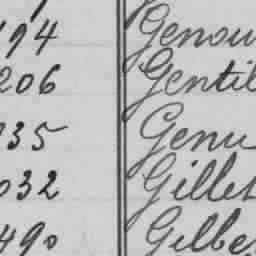 194 Genou
206 Gentil
235 Genu
032 Gillet
490 Gilbe